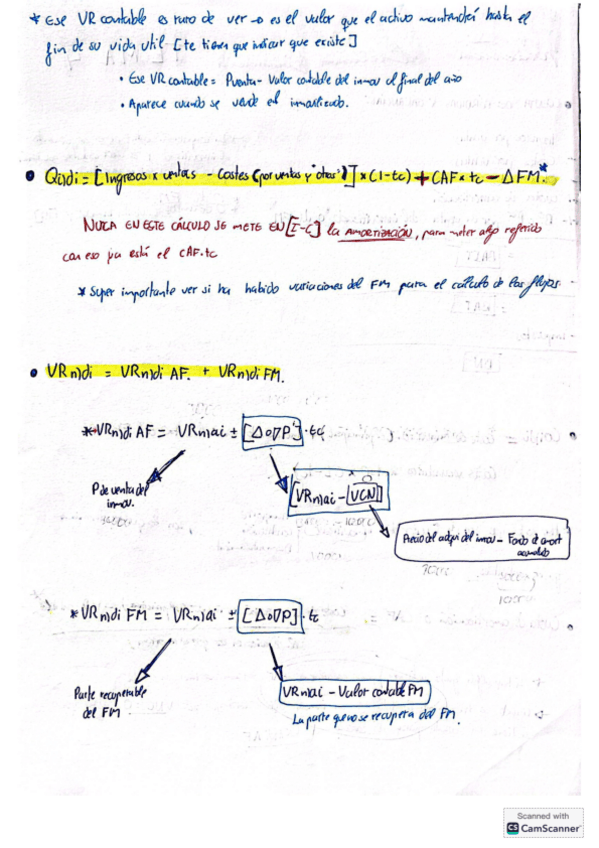 * Ese VR contable es raro de ver → es el valor que el activo mantendrá hasta el
fin de su vida util [te tienen que indicar que existe]
• Ese VR contable = Pventa - Valor contable del inmov al final del año
• Aparece cuando se vende el inmovilizado.
• Qi)di = [Ingresos x ventas - Costes (por ventas y "otros")] * (1-tc) + CAF * tc - ΔFM.*
NUNCA EN ESTE CÁLCULO SE METE EN [I-C] la AMORTIZACIÓN, para meter algo referido
con eso ya está el CAF.tc
* Super importante ver si ha habido variaciones del FM para el cálculo de los flujos.
• VRn)di = VRn)di AF. + VRn)di FM.
* VRn)di AF = VRn)ai ± [Δ o ∇P] · tc
P de venta del
inmov.
[VRn)ai - [VCN]]
Precio del adqui del inmov - Fondo d amort
acumulado
* VRn)di FM = VRn)ai ± [Δ o ∇P] · tc
Parte recuperable
del FM
VRn)ai - Valor contable FM
La parte que no se recupera del FM.
Scanned with
CS CamScanner